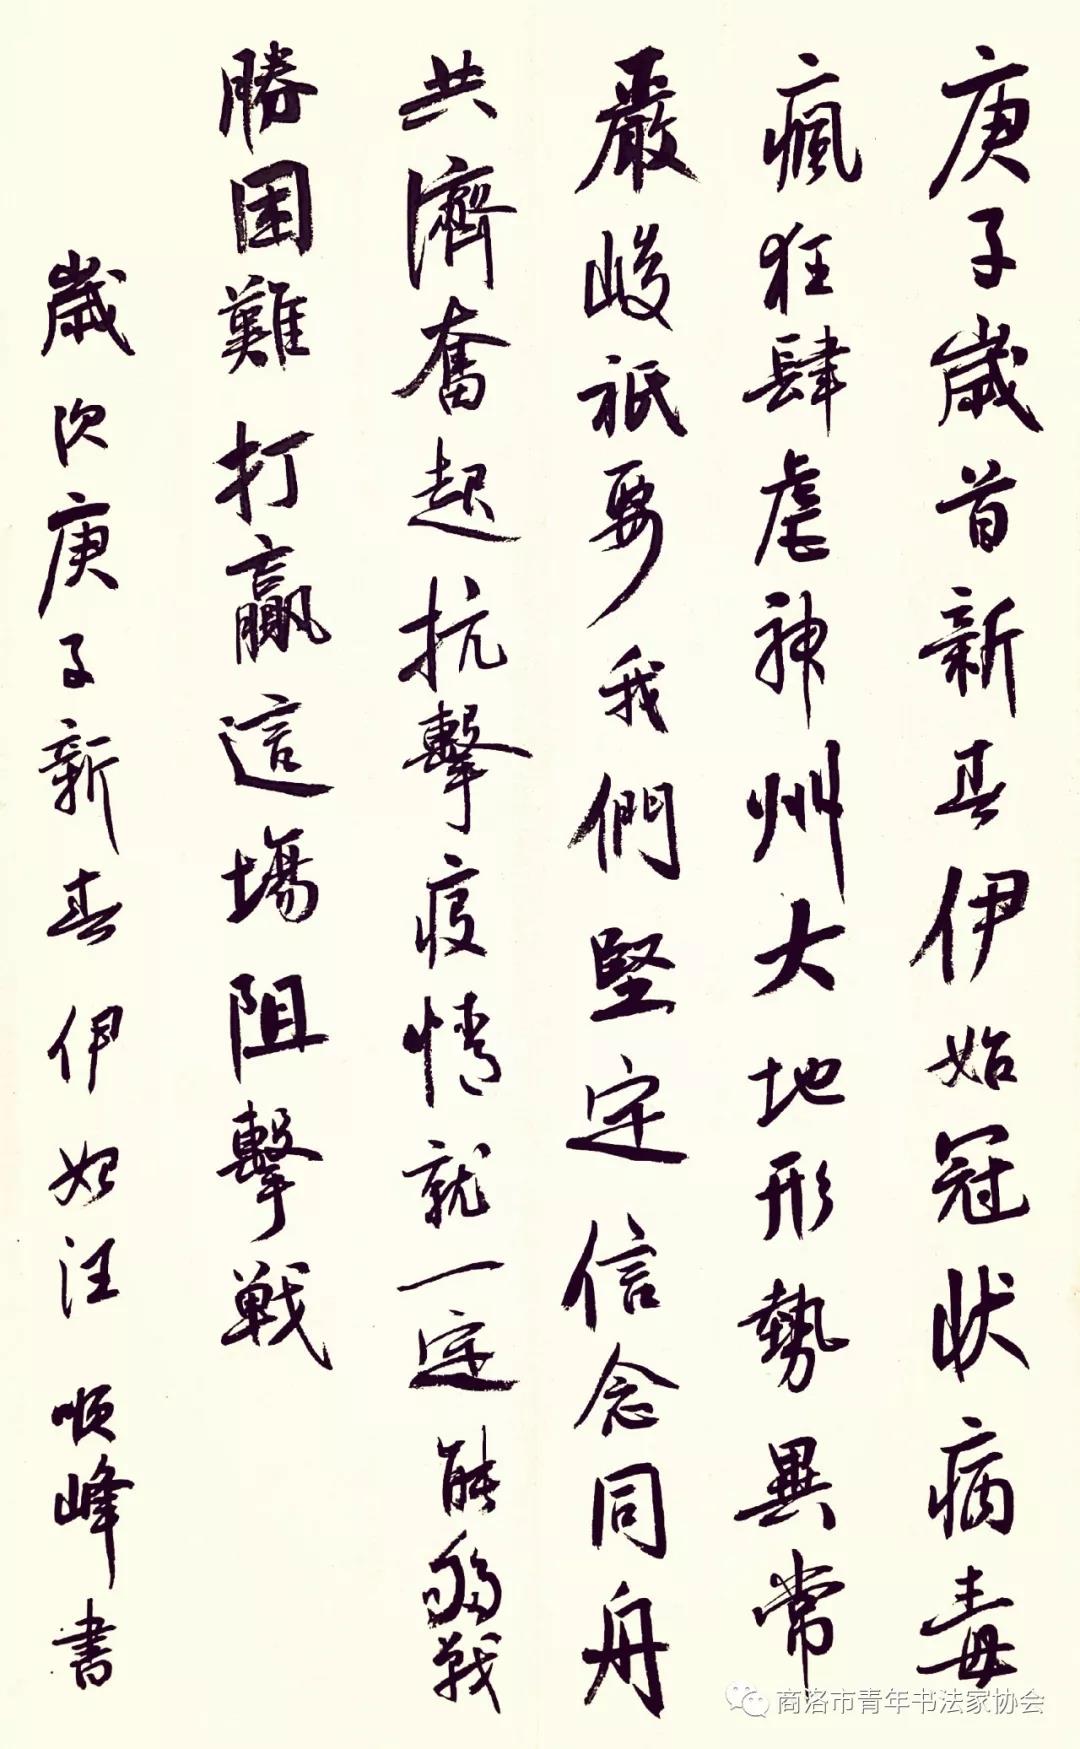 庚子歲首新春伊始冠状病毒
瘋狂肆虐神州大地形勢異常
嚴峻祇要我們堅定信念同舟
共濟奮起抗擊疫情就一定能夠戰
勝困難打贏這場阻擊戰
歲次庚子新春伊始汪順峰書
商洛市青年书法家协会